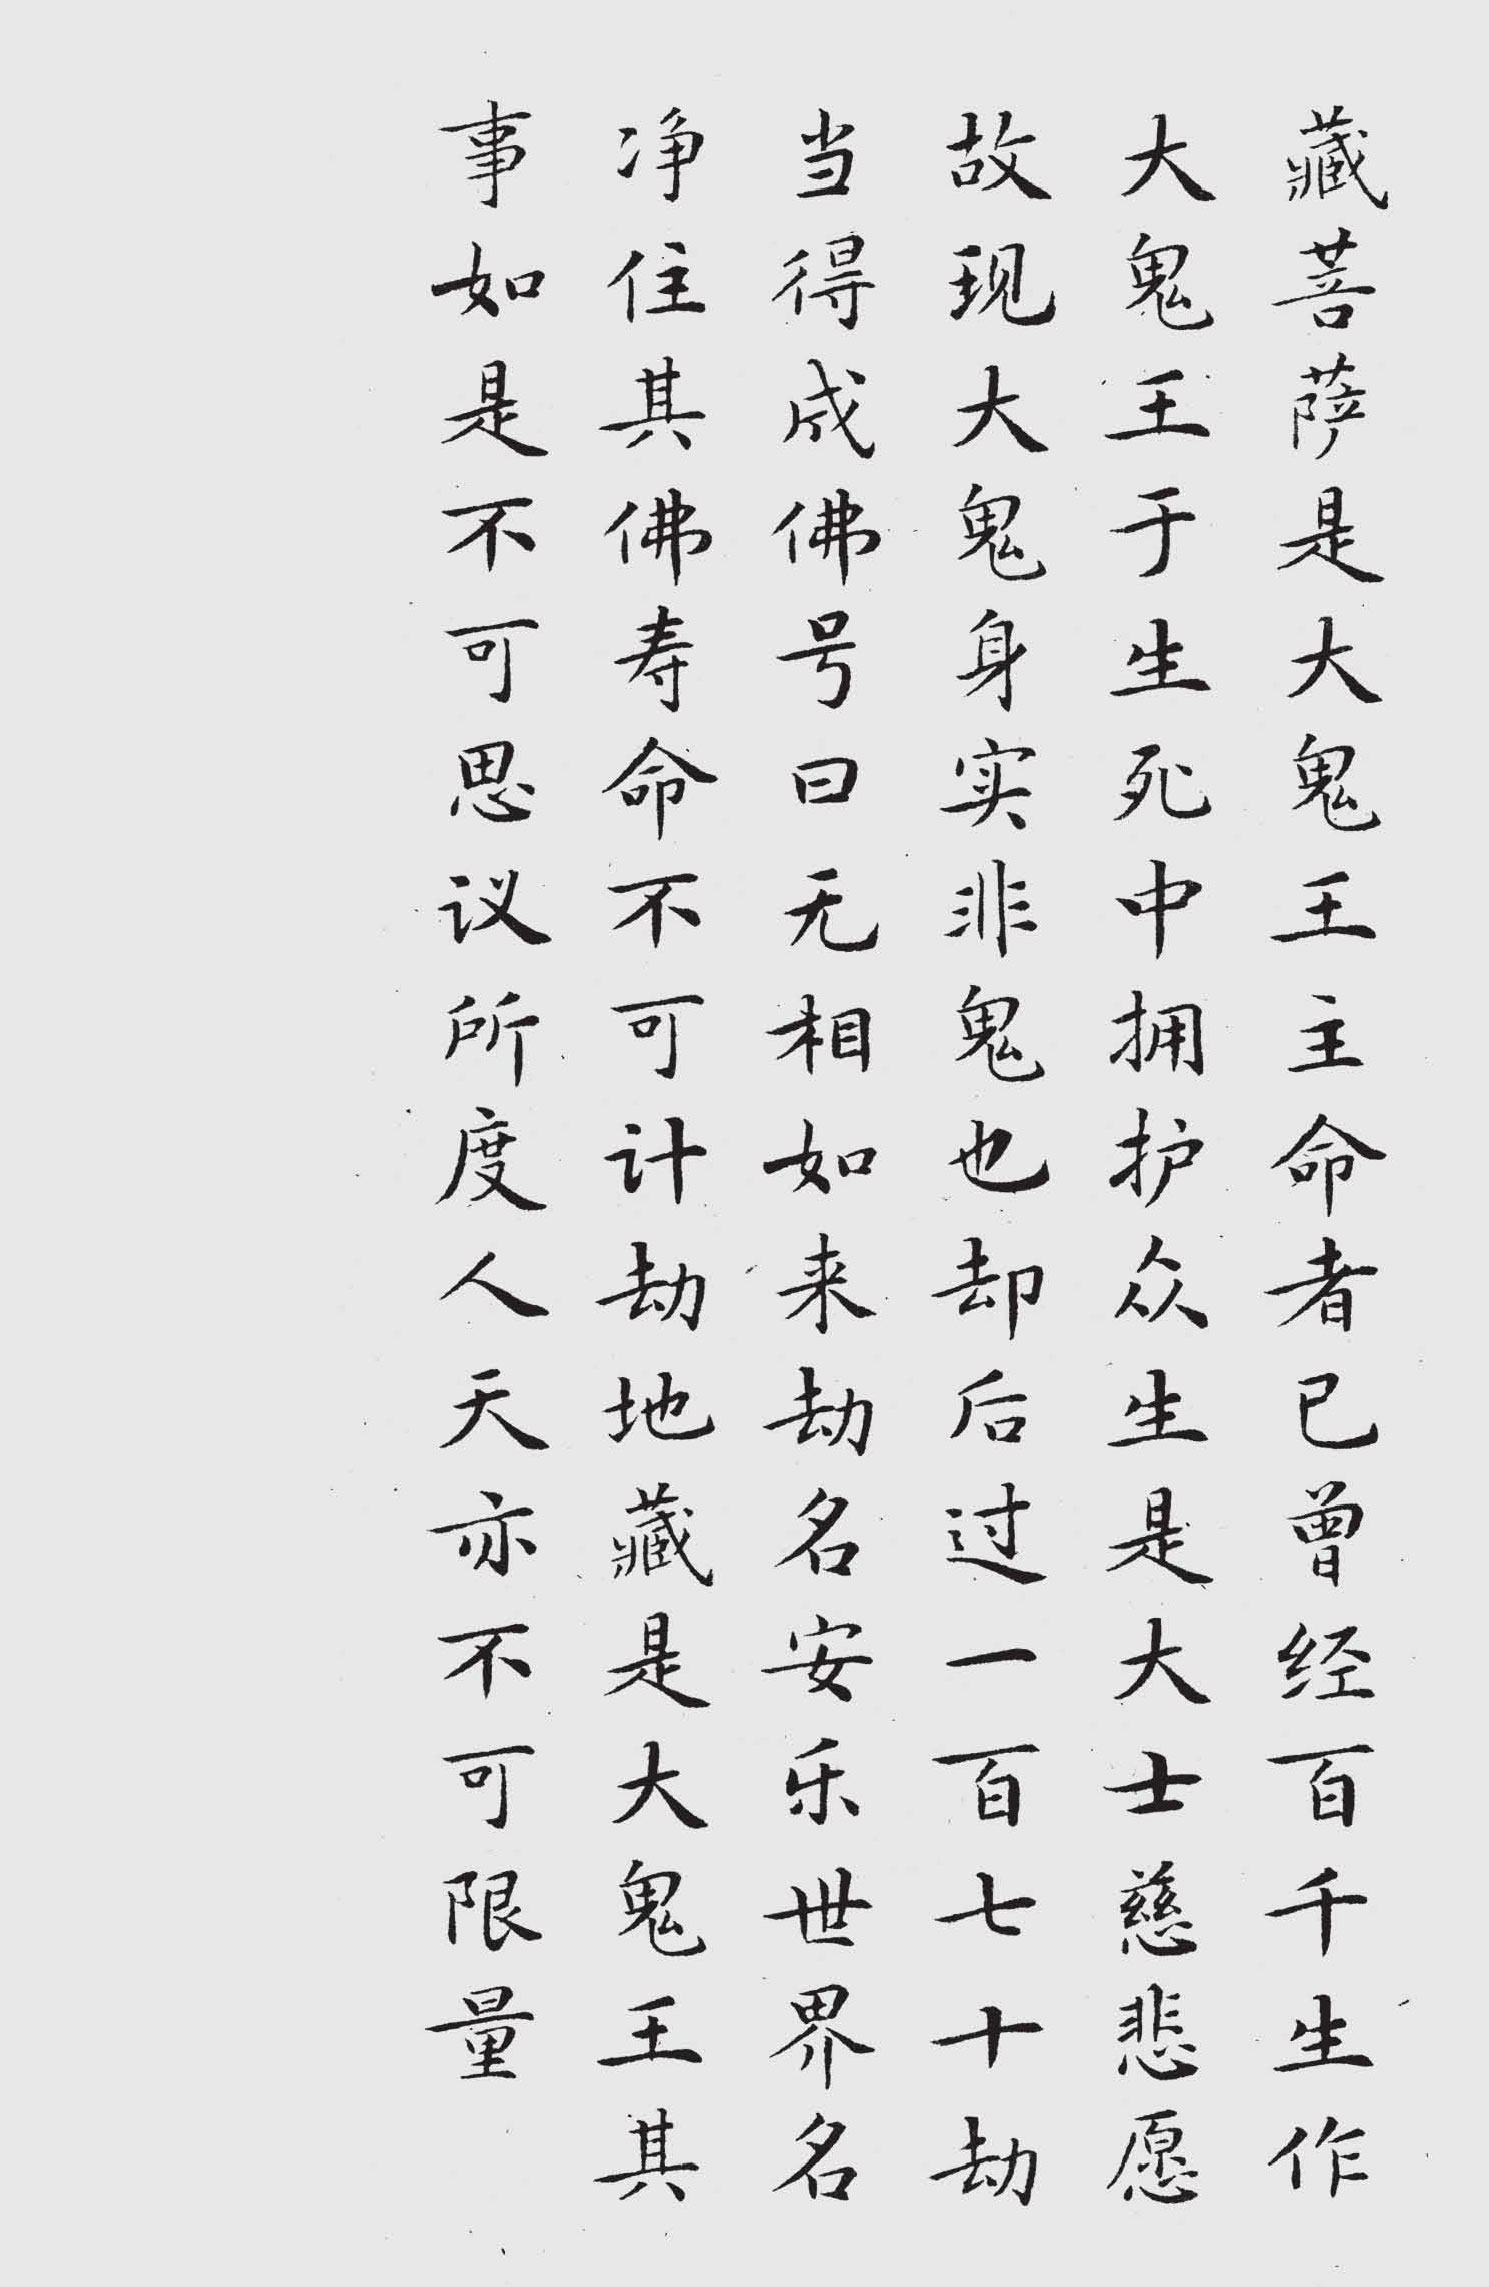 藏菩萨是大鬼王主命者已曾经百千生作
大鬼王于生死中拥护众生是大士慈悲愿
故现大鬼身实非鬼也却后过一百七十劫
当得成佛号曰无相如来劫名安乐世界名
净住其佛寿命不可计劫地藏是大鬼王其
事如是不可思议所度人天亦不可限量